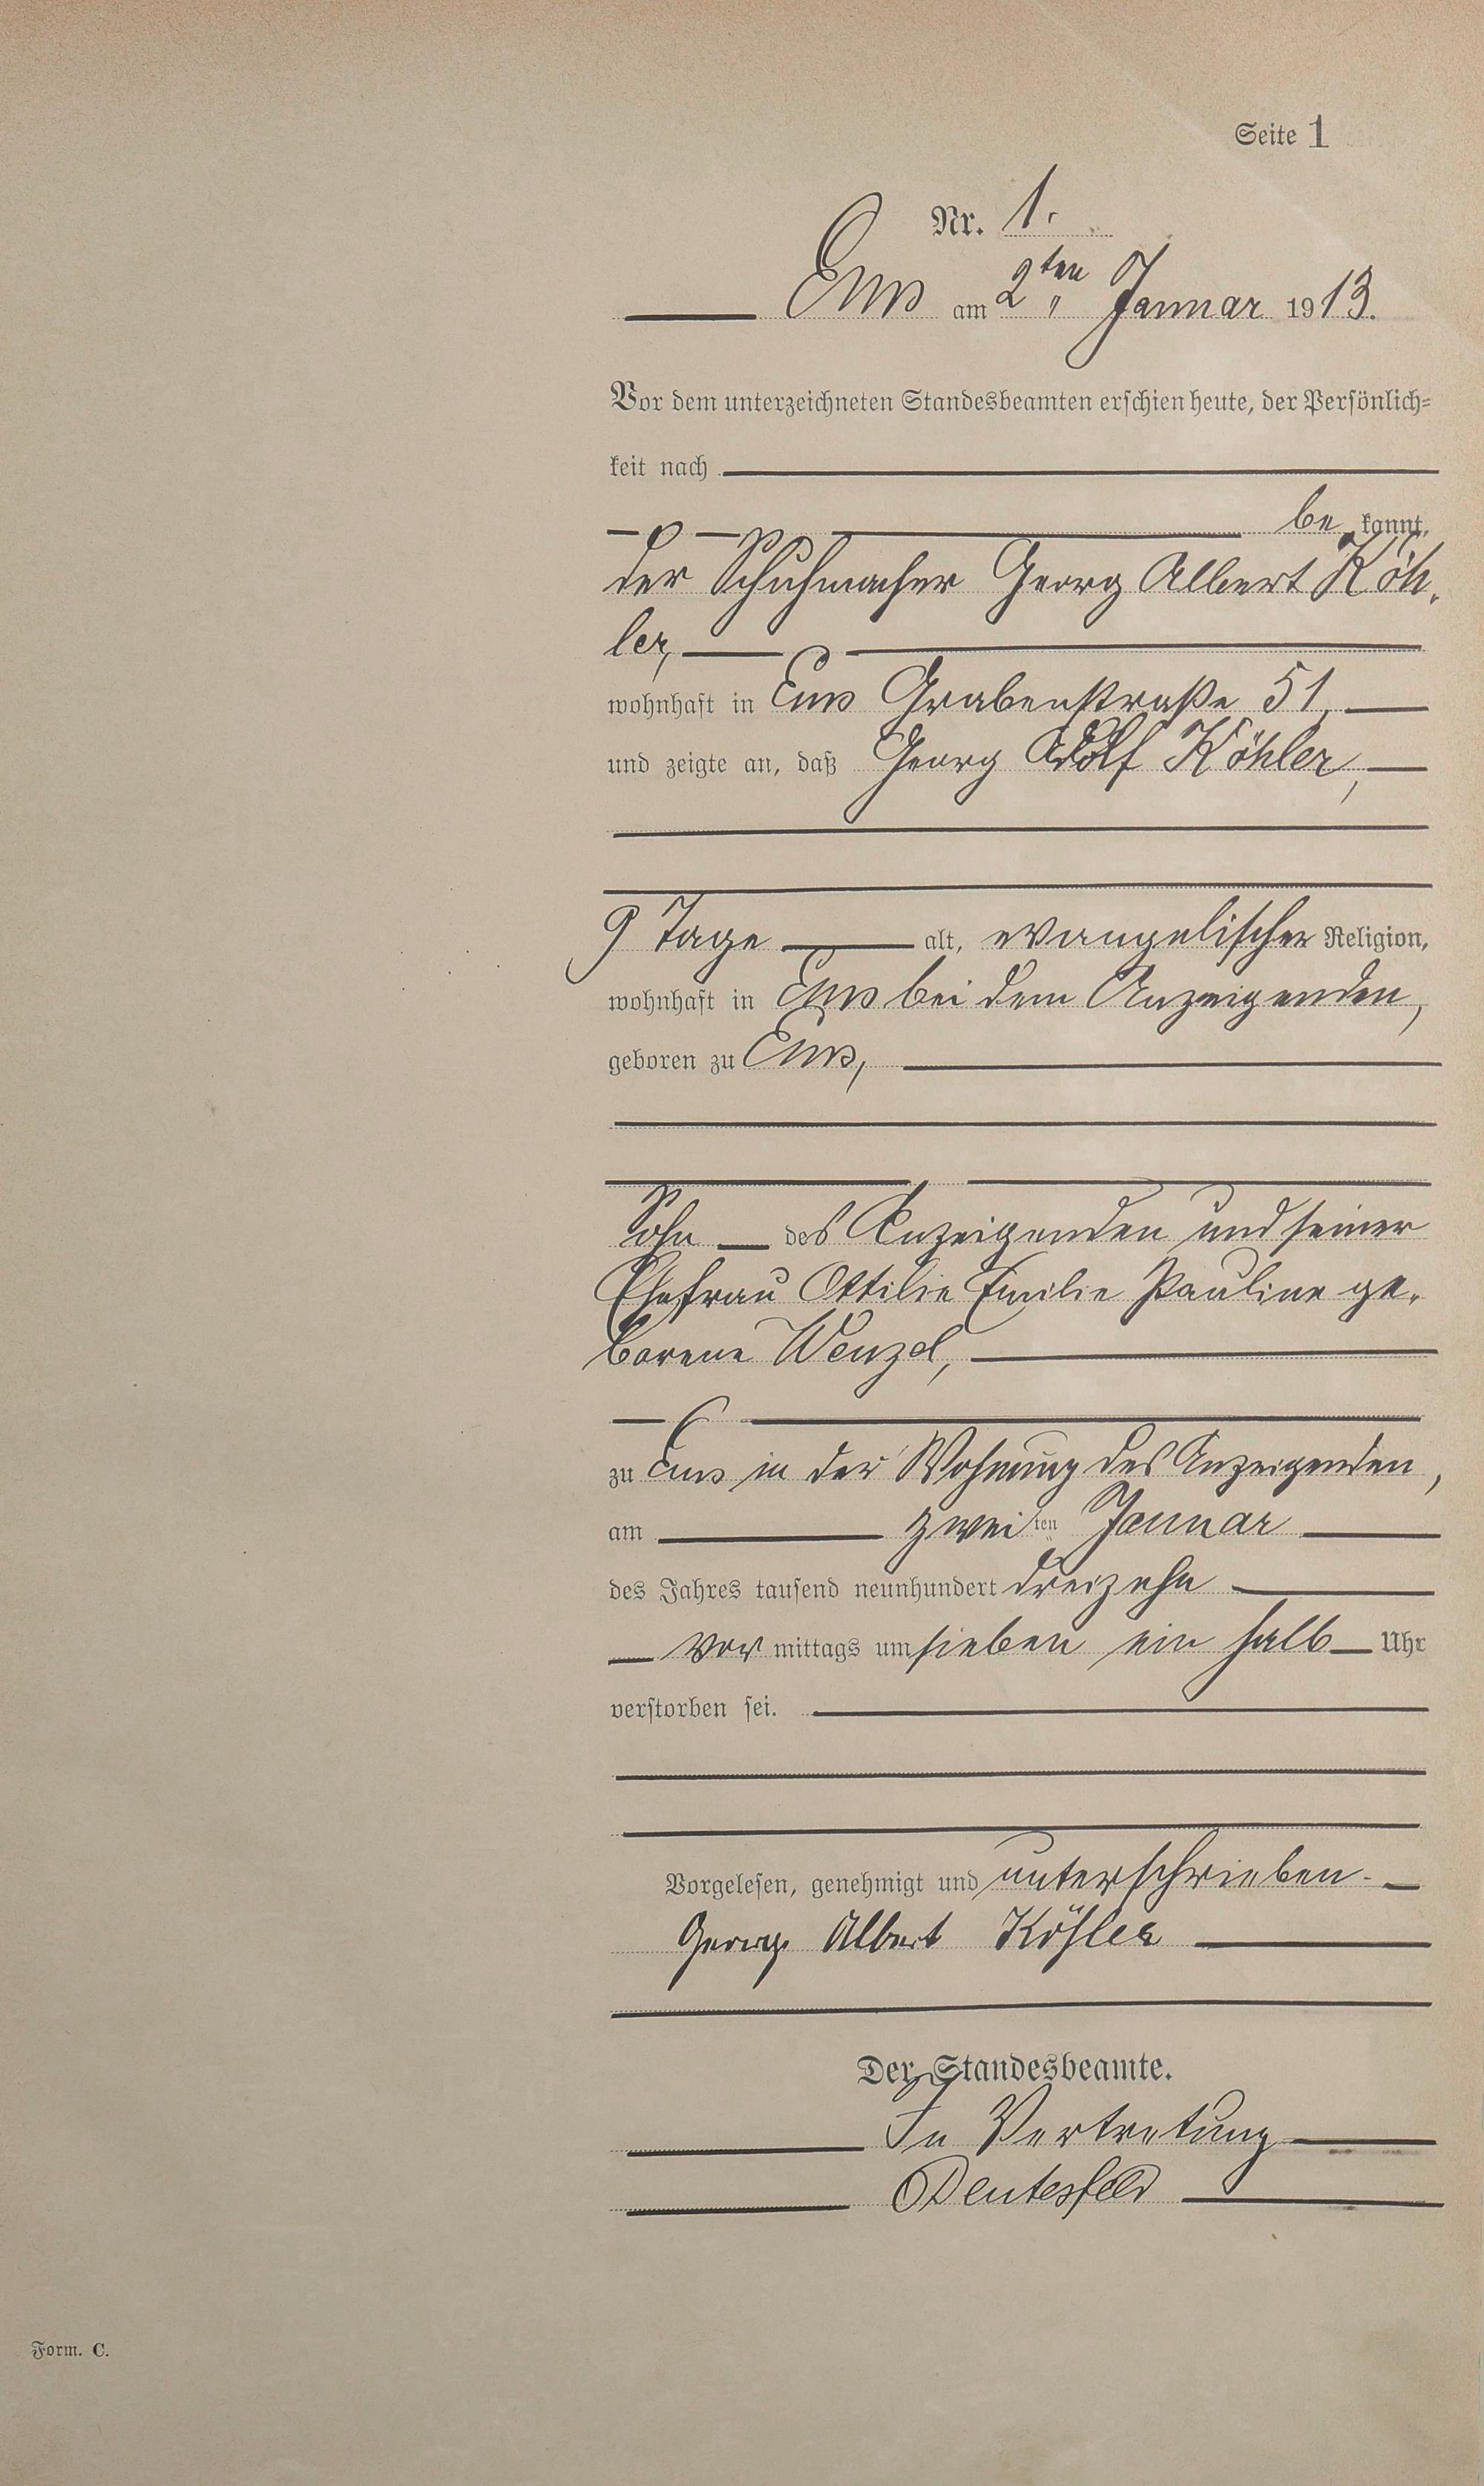 Seite 1
Nr. 1.
Ems am 2ten Januar 1913.
Vor dem unterzeichneten Standesbeamten erschien heute, der Persönlich=
keit nach
be kannt,
der Schuhmacher Georg Albert Köh-
ler,
wohnhaft in Ems Grabenstraße 51,
und zeigte an, daß Georg Adolf Köhler,
9 Tage alt, evangelischer Religion,
wohnhaft in Ems bei dem Anzeigenden,
geboren zu Ems,
Sohn des Anzeigenden und seiner
Ehefrau Ottilie Emilie Pauline ge-
borene Wenzel,
zu Ems in der Wohnung des Anzeigenden,
am zweiten Januar
des Jahres tausend neunhundert dreizehn
vor mittags um sieben ein halb Uhr
verstorben sei.
Vorgelesen, genehmigt und unterschrieben.
Georg Albert Köhler
Der Standesbeamte.
In Vertretung
Form. C.